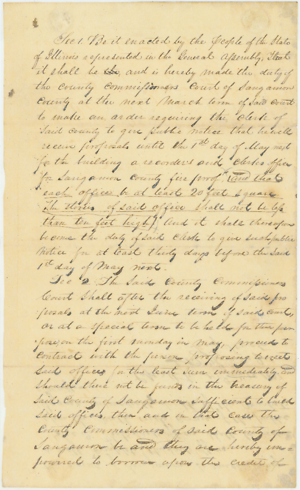 Sec 1 Be it enacted by the People of the State
of Illinois represented in the General Assembly, That
it shall be and is hereby made the duty of
the County Commissioners Court of Sangamon
County at the next March term of said Court
to make an order requiring the Clerk of
said County to give public notice that he will
receive proposals until the 1st day of May next
for the building a recorders and Clerks office
for Sangamon County fire proof and that
each office be at least 20 feet square
The stories of said office shall not be less
than ten feet high, and it shall thereupon
become the duty of said Clerk to give such public
Notice for at least thirty days before the said
1st day of May next.
Sec 2 The said County Commissioners
Court shall after the receiving of said pro
posals at the next June term of said court,
or at a special term to be held for that pur
pose on the first monday in may, proceed to
contract with the person proposing to erect
said offices for the least sum immediately and
should there not be funds in the treasury of
said County of Sangamon sufficient to build
said offices, then and in that case the
County Commissioners of said County of
Sangamon be and they are hereby em
powered to borrow upon the credit of